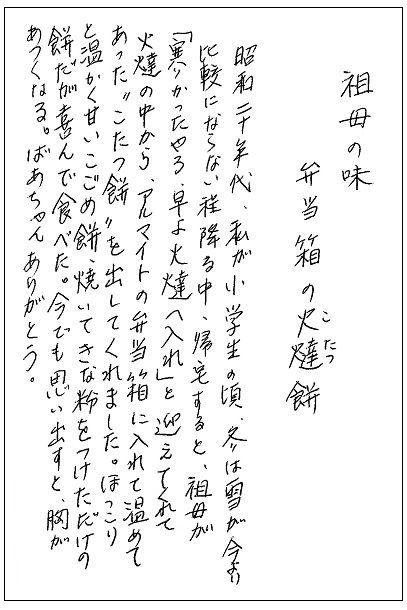 祖母の味
弁当箱の火燵餅
こたつ
昭和二十年代、私が小学生の頃、冬は雪が今より
比較にならない程降る中、帰宅すると、祖母が
「寒かったやろ、早よ火燵へ入れ」と迎えてくれて
火燵の中から、アルマイトの弁当箱に入れて温めて
あった〝こたつ餅〟を出してくれました。ほっこり
と温かく甘いこごめ餅、焼いてきな粉をつけただけの
餅だが喜んで食べた。今でも思い出すと、胸が
あつくなる。ばあちゃんありがとう。